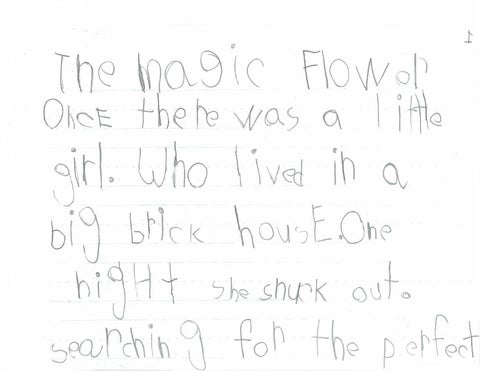 1
The magic Flower
OncE there was a little
girl. Who lived in a
big brick housE. One
nigHt she snuck out.
searching for the perfect